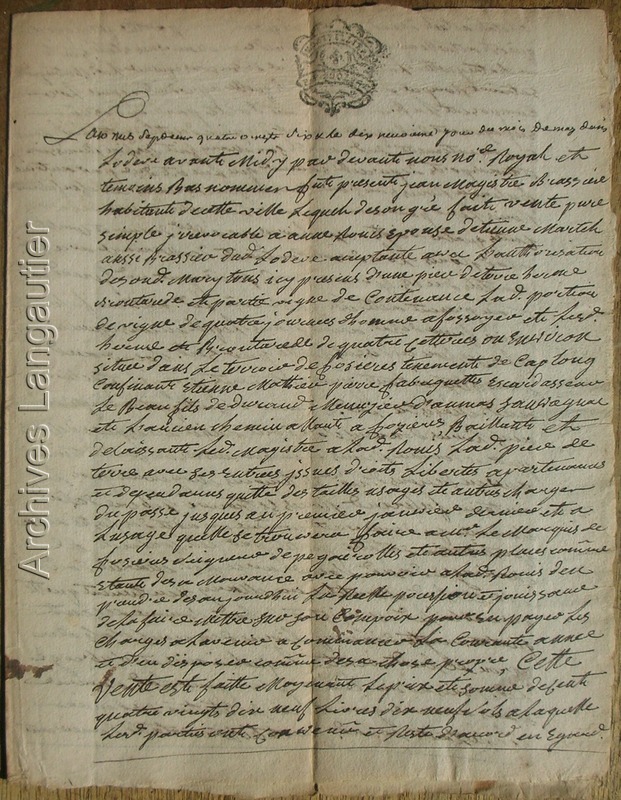 Lan mil sept cent quatre vingts dix & le dix neuvieme jour du mois de may dans
Lodeve avant Midy par devant nous no.re Royal et
temoins Bas nommes fut present jean Magistre Brassier
habitant de cette ville Lequel de son gré fait vente pure
simple irrevocable a anne Rouis Epouse detienne Martel
aussi Brassier dud. Lodeve acceptante avec Lauthorisation
desond. Mary tous icy presens d'une piece de terre herme
et partie vigne de Contenance Lad. portion
de vigne de quatre journées dhomme a fossoyer et Lesd.
herme et de quatre cetteries ou Environ
situé dans Le terroir de fozieres tenement de Cap long
Confinant Etienne Mathieu pierre fabreguettes escardasseur
Le Beau fils de durand Menuzier daumas
et Lancien chemin allant a fozieres Baillant et
delaissant Led. Magistre a Lad. Rouis Lad. piece de
terre avec ses entrées issues droits Libertés apartenances
et dependances quitte des tailles usages et autres charges
du passé jusques au premier janvier dernier et a
Lusage quelle se trouvera faire a Mr. Le Marquis de
fozieres seigneur de pegairolles et autres places comme
etant de sa Mouvance avec pouvoir a Lad. Rouis den
prendre des aujourdhui La Reelle possession et jouissance
de La faire Mettre sur son Compoix pour en payer Les
Charges a Lavenir a commencer La Courante année
et d'en disposer comme de sa chose propre Cette
Vente est faite Moyenant Le prix et somme de cent
quatre vingts dix neuf Livres dix neuf sols a Laquelle
Lesd. parties ont Convenu et Resté daccord en Egard
Archives Langautier